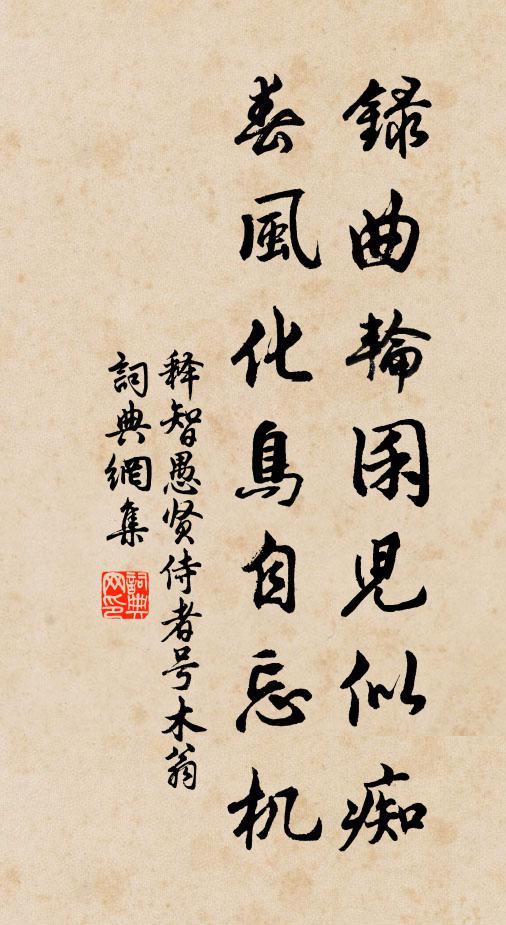 錄曲輪囷兒似痴
春風化鳥自忘机
释智愚贤侍者号木翁
詞典網集
詞典
网印